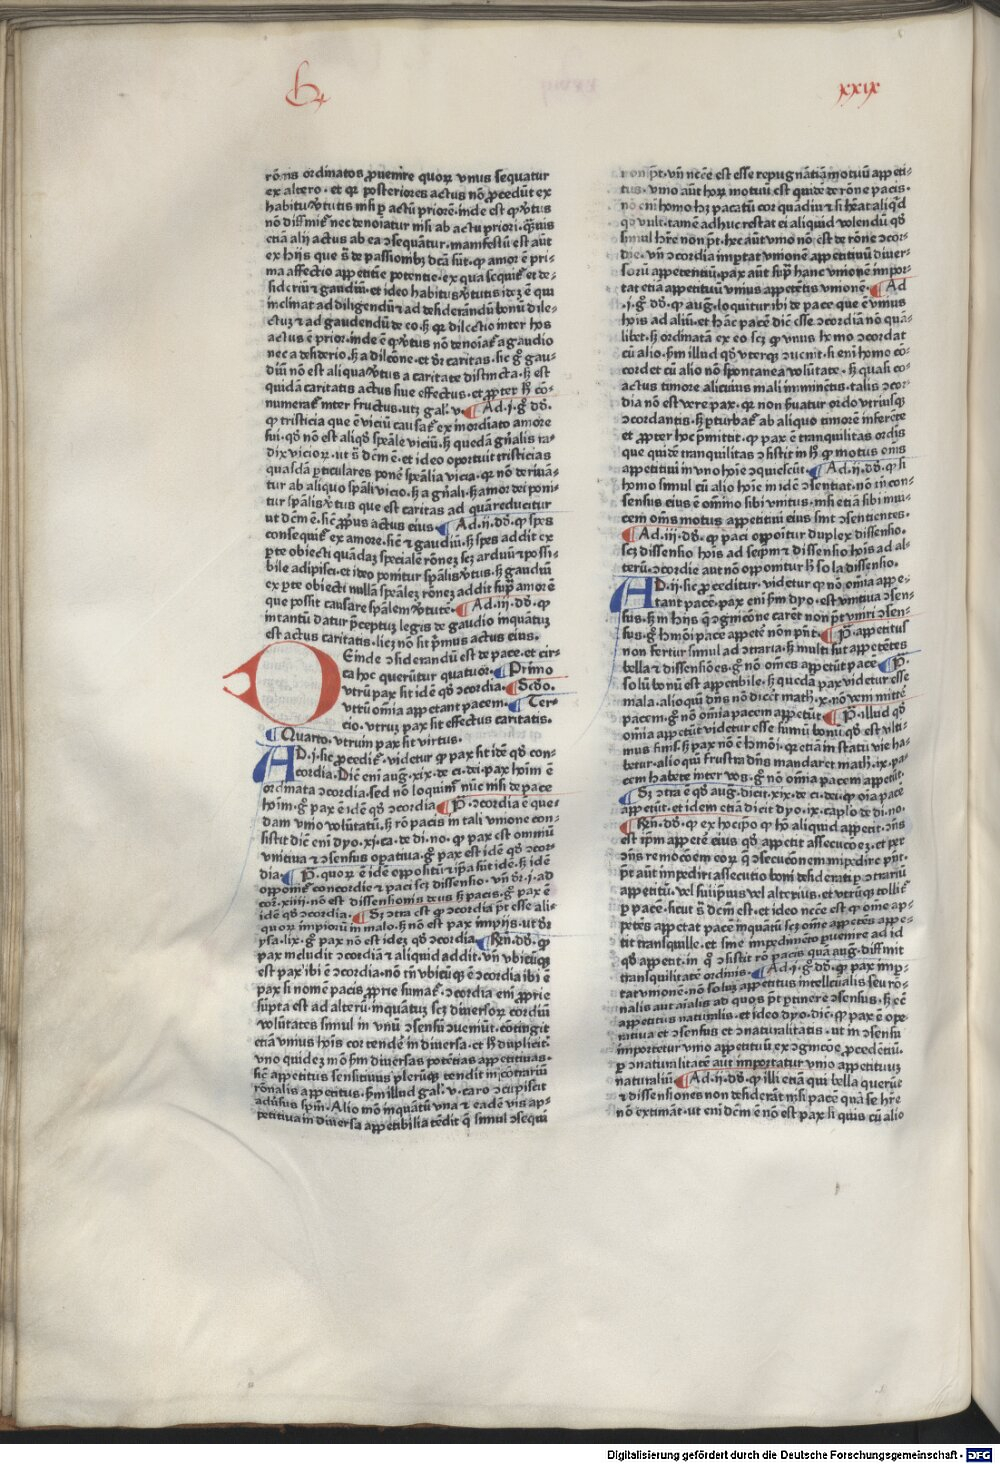 xxix
rōnis ordinatos ꝓuenire quoꝝ vnus sequatur
ex altero · et qꝛ posteriores actus nō ꝓcedūt ex
habitu v̓tutis nisi ꝑ actū priorē · inde est ꝙ v̓tus
nō diffinit᷑ nec denoīatur nisi ab actu priori · quis
etiā alij actus ab ea ↄsequātur · manifestū est aūt
ex hijs que s̄ de passionibꝫ dcā sūt · ꝙ amor ē pri-
ma affectio appetitie potentie · ex qua sequit᷑ et de-
sideriū ⁊ gaudiū · et ideo habitus v̓tutis idez ē qui
inclinat ad diligendū ⁊ ad desiderandū bonū dile-
ctuꝫ ⁊ ad gaudendū de eo · sꝫ qꝛ dilectio inter hos
actus ē prior · inde ē ꝙ v̓tus nō denoīat᷑ a gaudio
nec a desiderio · sꝫ a dilcōne · et dr̄ caritas · sic gͦ gau-
diū nō est aliqua v̓tus a caritate distincta · sꝫ est
quidā caritatis actus siue effectus · et ꝓpter hͦ cō-
numerat᷑ inter fructus · utꝫ gal᷑ · v · ¶ Ad · j · gͦ dō ·
ꝙ tristicia que ē viciū causat᷑ ex inordīato amore
sui · qͦs nō est aliqͦs spēale viciū · sꝫ quedā gn̄alis ra-
dix vicioꝝ · ut s̄ dcm̄ ē · et ideo oportuit tristicias
quasdā ꝑticulares ponē spēalia vicia · qꝛ nō deriuā-
tur ab aliquo spāli vicio · sꝫ a gn̄ali · sꝫ amor dei poni-
tur spālis v̓tus que est caritas ad quā reducitur
ut dcm̄ ē · sic̄ ꝓprius actus eius · ¶ Ad · ii · dō · ꝙ spes
consequit᷑ ex amore · sic̄ ⁊ gaudiū · sꝫ spes addit ex
ꝑte obiecti quādaꝫ speciale rōneꝫ scꝫ arduū ⁊ possi-
bile adipisci · et ideo ponitur spālis v̓tus · sꝫ gaudiū
ex ꝑte obiecti nullā spēaleꝫ rōneꝫ addit suꝑ amorē
que possit causare spālem v̓tutē · ¶ Ad · iii · dō · ꝙ
intantū datur p̄ceptuꝫ legis de gaudio inquātuꝫ
est actus caritatis · licꝫ nō sit pⁱmus actus eius ·
DEinde ↄsiderandū est de pace · et cir-
ca hoc querūtur quatuor · ¶ Primo
vtrū pax sit idē qͦs ↄcordia · ¶ Scdo ·
vtrū omīa appetant pacem · ¶ Ter-
cio · vtruꝫ pax sit effectus caritatis ·
¶ Quarto · vtrum pax sit virtus ·
AD · j · sic ꝓcedit᷑ · videtur ꝙ pax sit idē qͦs con-
cordia · Dic̄ eni aug᷑ · xix · de ci · dei · pax hoīm ē
ordinata ↄcordia · sed nō loquim᷑ nūc nisi de pace
hoīm · gͦ pax ē idē qͦs ↄcordia · ¶ P̄ · ↄcordia ē que-
dam vnio volūtatū · sꝫ rō pacis in tali vnione con-
sistit dic̄ eni dyo · xi · ca · de di · no · ꝙ pax est omniū
vnitiua ⁊ ↄsensus oꝑatiua · gͦ pax est idē qͦs ↄcor-
dia · ¶ P̄ · quoꝝ ē idē oppositū ⁊ ip̄a sūt idē · sꝫ idē
opponit᷑ concordie ⁊ paci scꝫ dissensio · vn̄ dr̄ · j · ad
cor · xiiii · nō est dissensionis deus sꝫ pacis · gͦ pax ē
idē qͦs ↄcordia · ¶ Sꝫ ↄtra est ꝙ ↄcordia p̄t esse ali-
quoꝝ impioꝝ in malo · sꝫ nō est pax impijs · ut dr̄
ysa · lix · gͦ pax nō est ideꝫ qͦs ↄcordia · ¶ Rn̄ · dō · ꝙ
pax includit ↄcordiā ⁊ aliquid addit · vn̄ vbicūqꝫ
est pax ibi ē ↄcordia · nō tn̄ vbicūqꝫ ē ↄcordia ibi ē
pax si nomē pacis ꝓprie sumat᷑ · ↄcordia eni ꝓprie
supta est ad alterū inquātuꝫ scꝫ diuersoꝝ cordiū
volūtates simul in vnū ↄsensū ↄueniūt · cōtingit
etiā vnius hoīs cor tendē in diuersa · et hͦ duplicit᷑ ·
vno quideꝫ mō sm̄ diuersas potētias appetitiuas ·
sic̄ appetitus sensitiuus plerūqꝫ tendit in cōtrariū
rōnalis appetitus · sm̄ illud gal᷑ · v · caro ↄcupiscit
adūsus spm̄ · Alio mō inquātū vna ⁊ eadē vis ap-
petitiua in diuersa appetibilia tēdit q̄ simul ↄsequi
non p̄t · vn̄ nccē est esse repugnātiā motuū appeti-
tus · vnio aūt hoꝝ motuū est quidē de rōne pacis ·
nō eni homo hꝫ pacatū cor quādiu ⁊ si hēat aliqͥd
qͦ vult · tamē adhuc restat ei aliquid volendū qͦs
simul hr̄e non p̄t · hec aūt vnio nō est de rōne ↄcor-
die · vn̄ ↄcordia īmptat vnionē appetituū diuer-
sorū appetentiū · pax aūt supͣ hanc vnionē impor-
tat etiā appetituū vnius appetētis vnionē · ¶ Ad
· j · gͦ dō · ꝙ aug᷑ loquitur ibi de pace que ē vnius
hoīs ad aliū · et hāc pacē dic̄ esse ↄcordiā nō quā-
libet · sꝫ ordinatā ex eo scꝫ ꝙ vnus hōmo ↄcordat
cū alio · sm̄ illud qͦs vterqꝫ ↄuenit · si eni homo cō-
cordet cū alio nō spontanea volūtate · sꝫ quasi co-
actus timore alicuius mali imminētis · talis ↄcor-
dia nō est vere pax · qꝛ non s̓uatur ordo vtriusqꝫ
ↄcordantis · sꝫ ꝑturbat᷑ ab aliquo timorē inferēte
et ꝓpter hoc p̄mittit · ꝙ pax ē tranquilitas ordīs
que quidē tranquilitas ↄsistit in hͦ ꝙ motus om̄s
appetitiui in vno hoīe ↄquiescūt · ¶ Ad · ii · dō · ꝙ si
homo simul cū alio hoīe in idē ↄsentiat · nō in con-
sensus eius ē omīno sibi vnitus · nisi etiā sibi inui-
cem om̄s motus appetitiui eius sint ↄsentientes ·
¶ Ad · iii · dō · ꝙ paci opponitur duplex dissensio ·
scꝫ dissensio hoīs ad seip̄m ⁊ dissensio hoīs ad al-
terū · ↄcordie aūt nō opponitur nͥ sola dissensio ·
AD · ii · sic ꝓceditur · videtur ꝙ nō omīa appe-
tant pacē · pax eni sm̄ dyo · est vnitiua ↄsen-
sus · sꝫ in hijs q̄ ↄgnicōne carēt non p̄t vniri ↄsen-
sus · gͦ hmōi pace appetē non pn̄t · ¶ P̄ · appetitus
non fertur simul ad ↄtraria · sꝫ multi sūt appetētes
bella ⁊ dissensiōes · gͦ nō om̄es appetūt pacē · ¶ P̄ ·
solū bonū est appetibile · sꝫ queda pax videtur esse
mala · alioqui dn̄s nō dicēt math᷑ · x · nō veni mittē
pacem · gͦ nō omīa pacem appetūt · ¶ P̄ · illud qͦs
omīa appetūt videtur esse sumū bonū qͦs est vlti-
mus finis · sꝫ pax nō ē hmōi · qꝛ etiā in statu vie ha-
betur · alioqui frustra dn̄s mandaret math᷑ · ix · pa-
cem habete inter vos · gͦ nō omīa pacem appetūt ·
¶ Sꝫ ↄtra ē qͦs aug᷑ · dicit · xix · de ci · dei · ꝙ oīa pacē
appetūt · et idem etiā dicit dyo · ix · caplo de di · no ·
¶ Rn̄ · dō · ꝙ ex hocip̄o ꝙ hō aliquid appetit · ↄn̄s
est ip̄m appetē eius qͦs appetit assecucōez · et ꝑ ↄt
ↄn̄s remocōem eoꝝ q̄ ↄsecucōnem impedire pn̄t ·
p̄t aūt impediri assecutio boni desiderati ꝑ ↄtrariū
appetitū · vel sui ip̄ius vel alterius · et vtrūqꝫ tollit᷑
ꝑ pacē · sicut s̄ dcm̄ est · et ideo nccē est ꝙ om̄e ap-
petēs appetat pacē inquātū scꝫ om̄e appetēs appe-
tit tranquille · et sine impedimēto ꝑuenire ad id
qͦs appetit · in qͦ ↄsistit rō pacis quā aug᷑ · diffinit
tranquilitatē ordinis · ¶ Ad · j · gͦ dō · ꝙ pax imp-
tat vnionē · nō soluꝫ appetitus intellcūalis seu rō-
nalis aut aīalis ad quos p̄t ꝑtinere ↄsensus · sꝫ ēc̄
appetitus naturalis · et ideo dyo · dic̄ · ꝙ pax ē ope-
ratiua et ↄsensus et ↄnaturalitatis · ut in ↄsensu
importetur vnio appetituū ex ↄgnicōe ꝓcedētiū ·
ꝑ ↄnaturalitatē aut importatur vnio appetituuꝫ
naturaliū · ¶ Ad · ii · dō · ꝙ illi etiā qui bella querūt
⁊ dissensiones non desiderāt nisi pacē quā se hr̄e
nō extimāt · ut eni dcm̄ ē nō est pax si quis cū alio
Digitalisierung gefördert durch die Deutsche Forschungsgemeinschaft - DFG